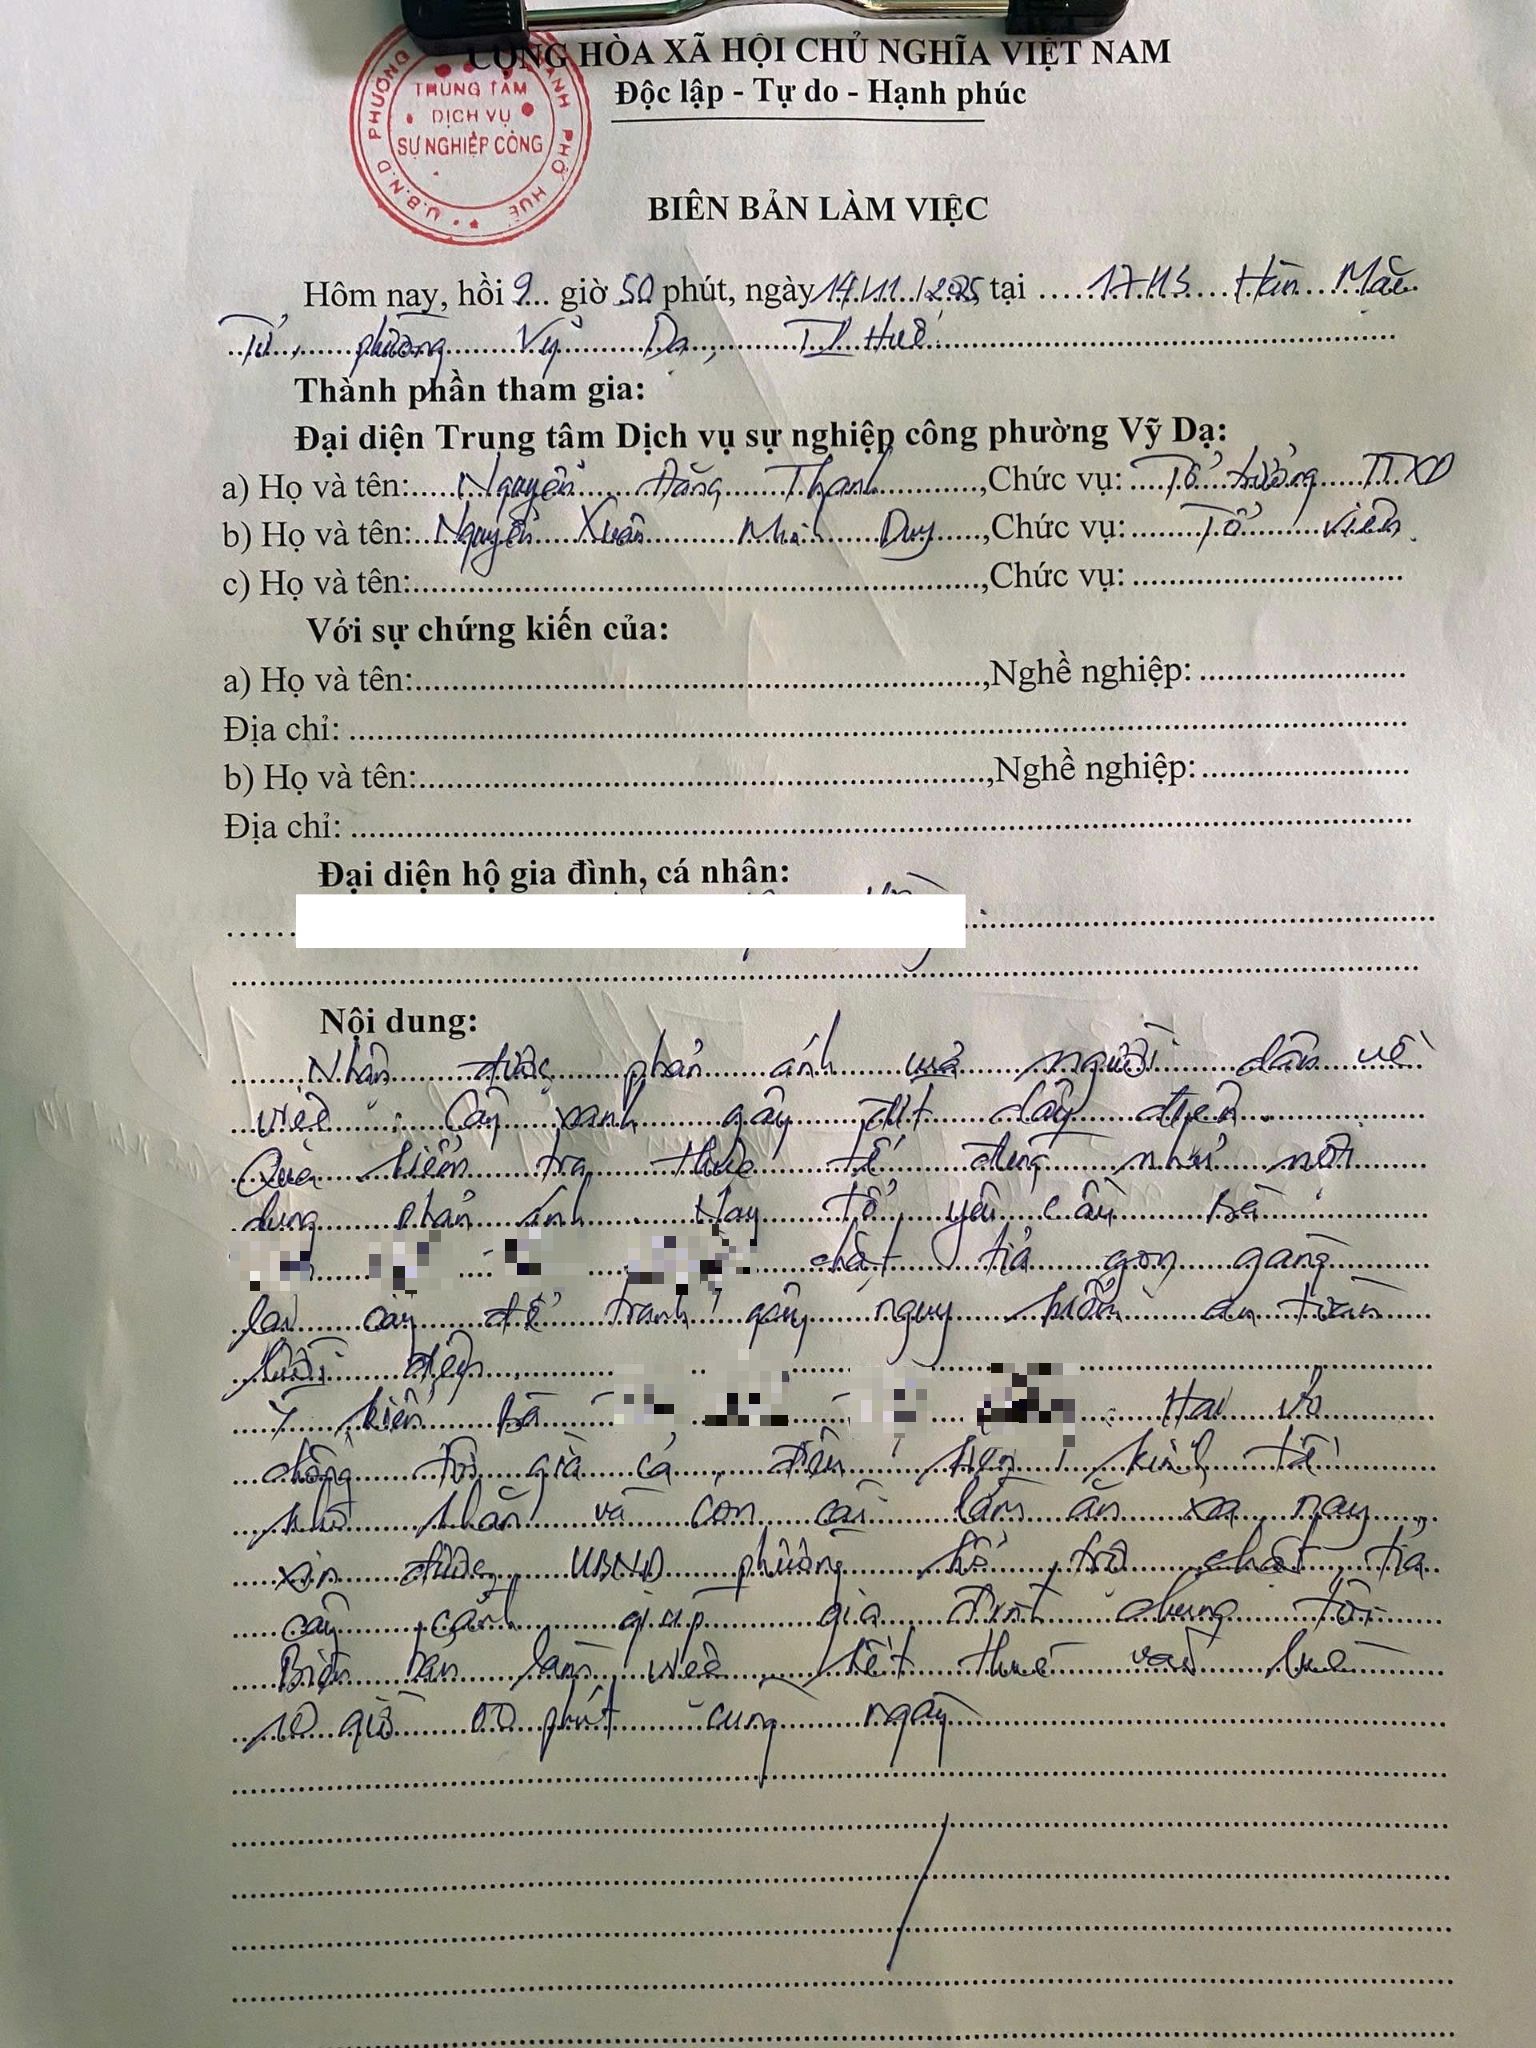 CỘNG HÒA XÃ HỘI CHỦ NGHĨA VIỆT NAM
Độc lập - Tự do - Hạnh phúc
U.B.N.D PHƯỜNG THÀNH PHỐ HUẾ
TRUNG TÂM
DỊCH VỤ
SỰ NGHIỆP CÔNG
BIÊN BẢN LÀM VIỆC
Hôm nay, hồi 9 giờ 50 phút, ngày 14/11/2025 tại Hàn Mặc
Tử, phường Vỹ Dạ, TP Huế
Thành phần tham gia:
Đại diện Trung tâm Dịch vụ sự nghiệp công phường Vỹ Dạ:
a) Họ và tên: Nguyễn Đăng Thạnh, Chức vụ: Tổ trưởng TTXD
b) Họ và tên: Nguyễn Xuân Nhị Duy, Chức vụ: Tổ viên
c) Họ và tên:, Chức vụ:
Với sự chứng kiến của:
a) Họ và tên:, Nghề nghiệp:
Địa chỉ:
b) Họ và tên:, Nghề nghiệp:
Địa chỉ:
Đại diện hộ gia đình, cá nhân:
Nội dung:
Nhận được phản ánh của người dân về
việc cây xanh gây đứt dây điện.
Qua kiểm tra thực tế đúng như nội
dung phản ánh. Nay tổ yêu cầu Bà
chặt tỉa gọn gàng
lại cây để tránh gây nguy hiểm an toàn
lưới điện.
Ý kiến Bà : Hai vợ
chồng tôi già cả, kinh tế
khó khăn và con cái làm ăn xa nay
xin được UBND phường hỗ trợ chặt tỉa
cây cảnh giúp gia đình chúng tôi.
Biên bản làm việc kết thúc vào lúc
10 giờ 00 phút cùng ngày